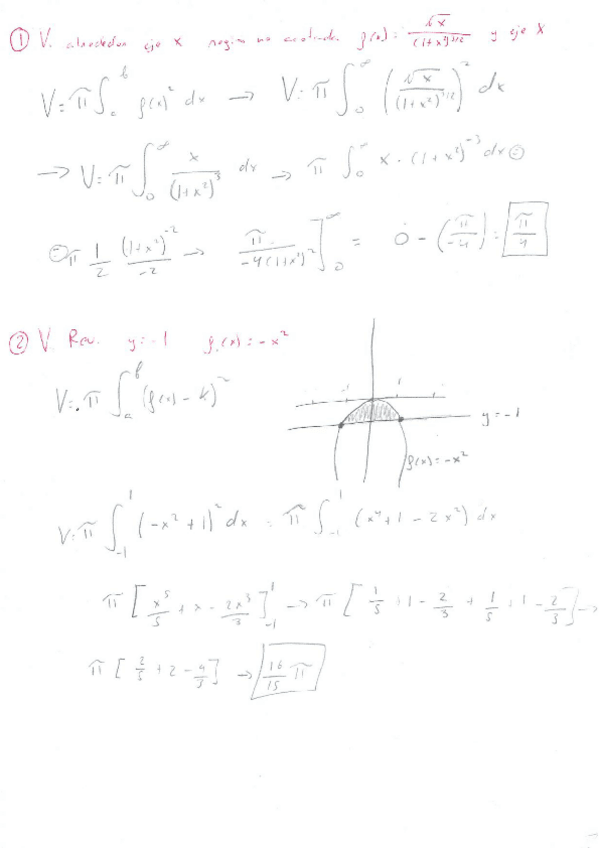 ① V. alrededor eje x region no acotada f(x) = √x / (1+x²)^{3/2} y eje x
V = π ∫_a^b f(x)² dx → V = π ∫_0^∞ (√x / (1+x²)^{3/2})² dx
→ V = π ∫_0^∞ x / (1+x²)³ dx → π ∫_0^∞ x · (1+x²)^{-3} dx ⊜
⊜ π 1/2 (1+x²)^{-2} / -2 → π / -4(1+x²)² ]_0^∞ = 0 - (π / -4) = π/4
② V. Rev. y = -1 f(x) = -x²
V = π ∫_a^b (f(x) - k)²
-1 1
y = -1
f(x) = -x²
V = π ∫_{-1}^1 (-x² + 1)² dx = π ∫_{-1}^1 (x⁴ + 1 - 2x²) dx
π [x⁵/5 + x - 2x³/3]_{-1}^1 → π [1/5 + 1 - 2/3 + 1/5 + 1 - 2/3] →
π [2/5 + 2 - 4/3] → 16/15 π